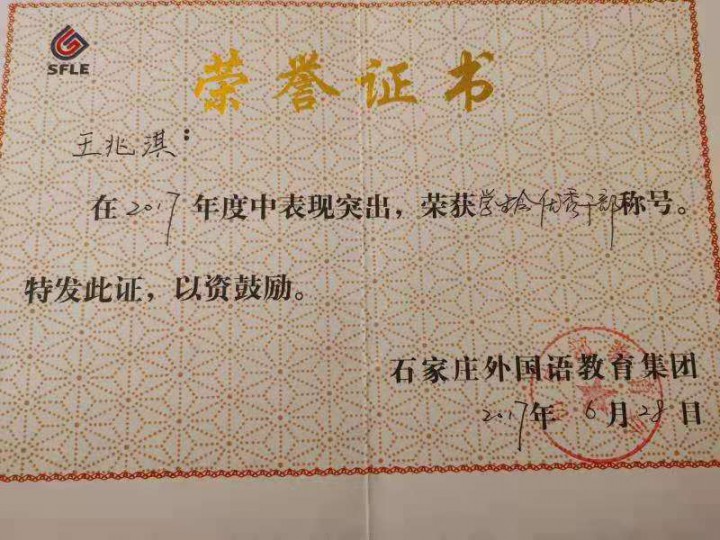 SFLE
荣誉证书
王兆淇：
在2017年度中表现突出，荣获学生会优秀干部称号。
特发此证，以资鼓励。
石家庄外国语教育集团
2017年6月28日